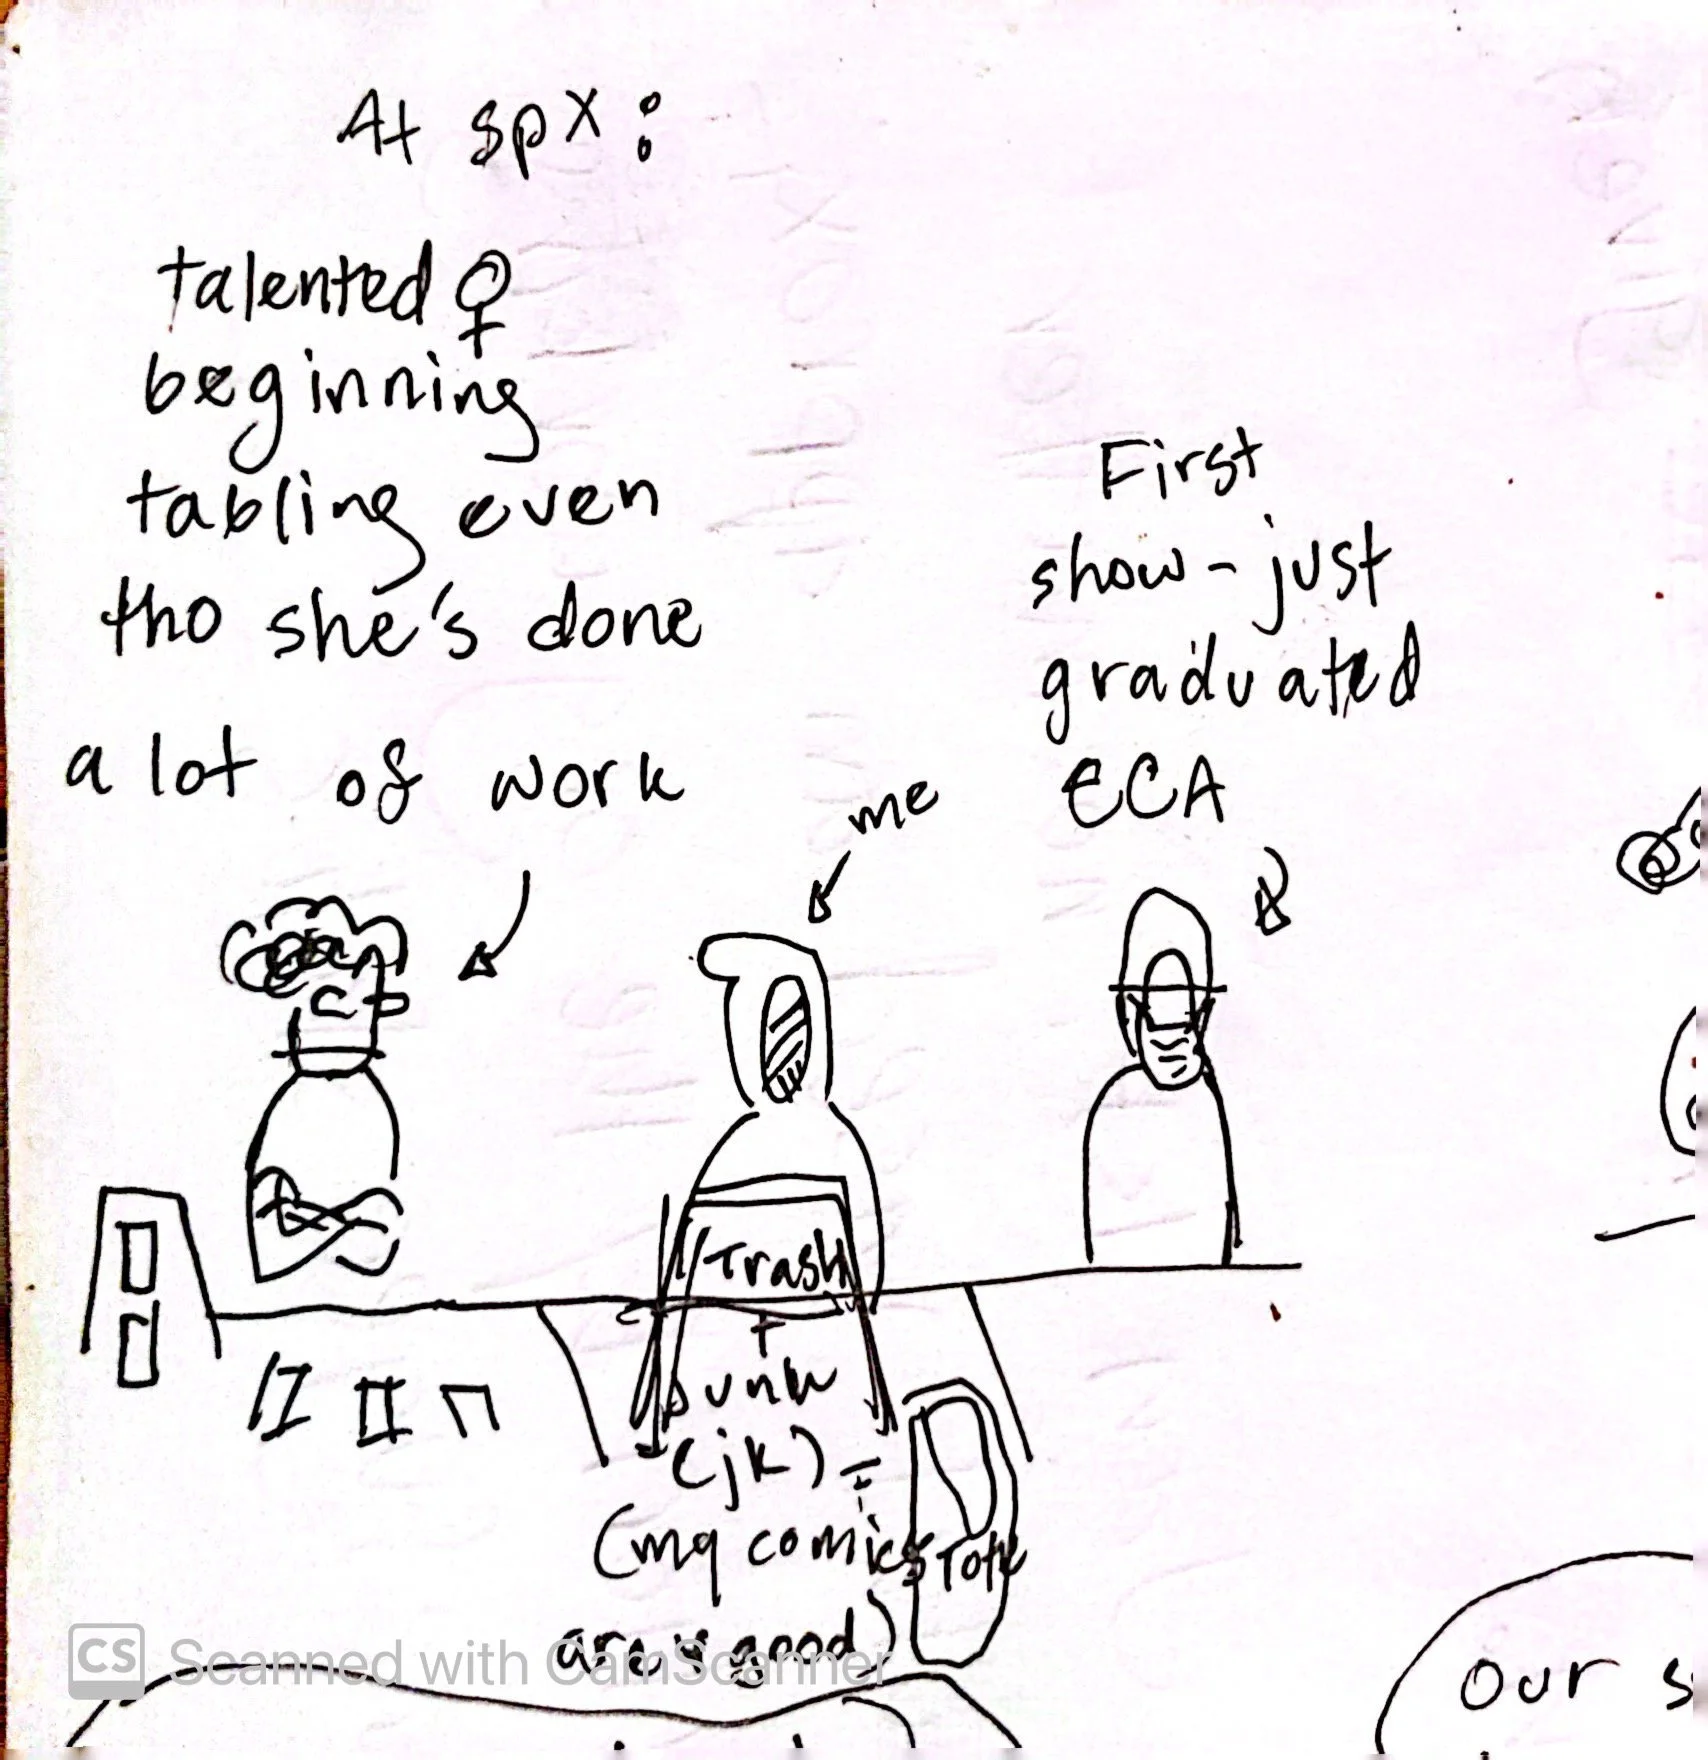 At spx:
talented ♀
beginning
tabling even
tho she's done
a lot of work
me
First
show - just
graduated
ECA
Trash
+
junk
(jk)
(my comics
are v good)
Tote
our s
CS Scanned with CamScanner